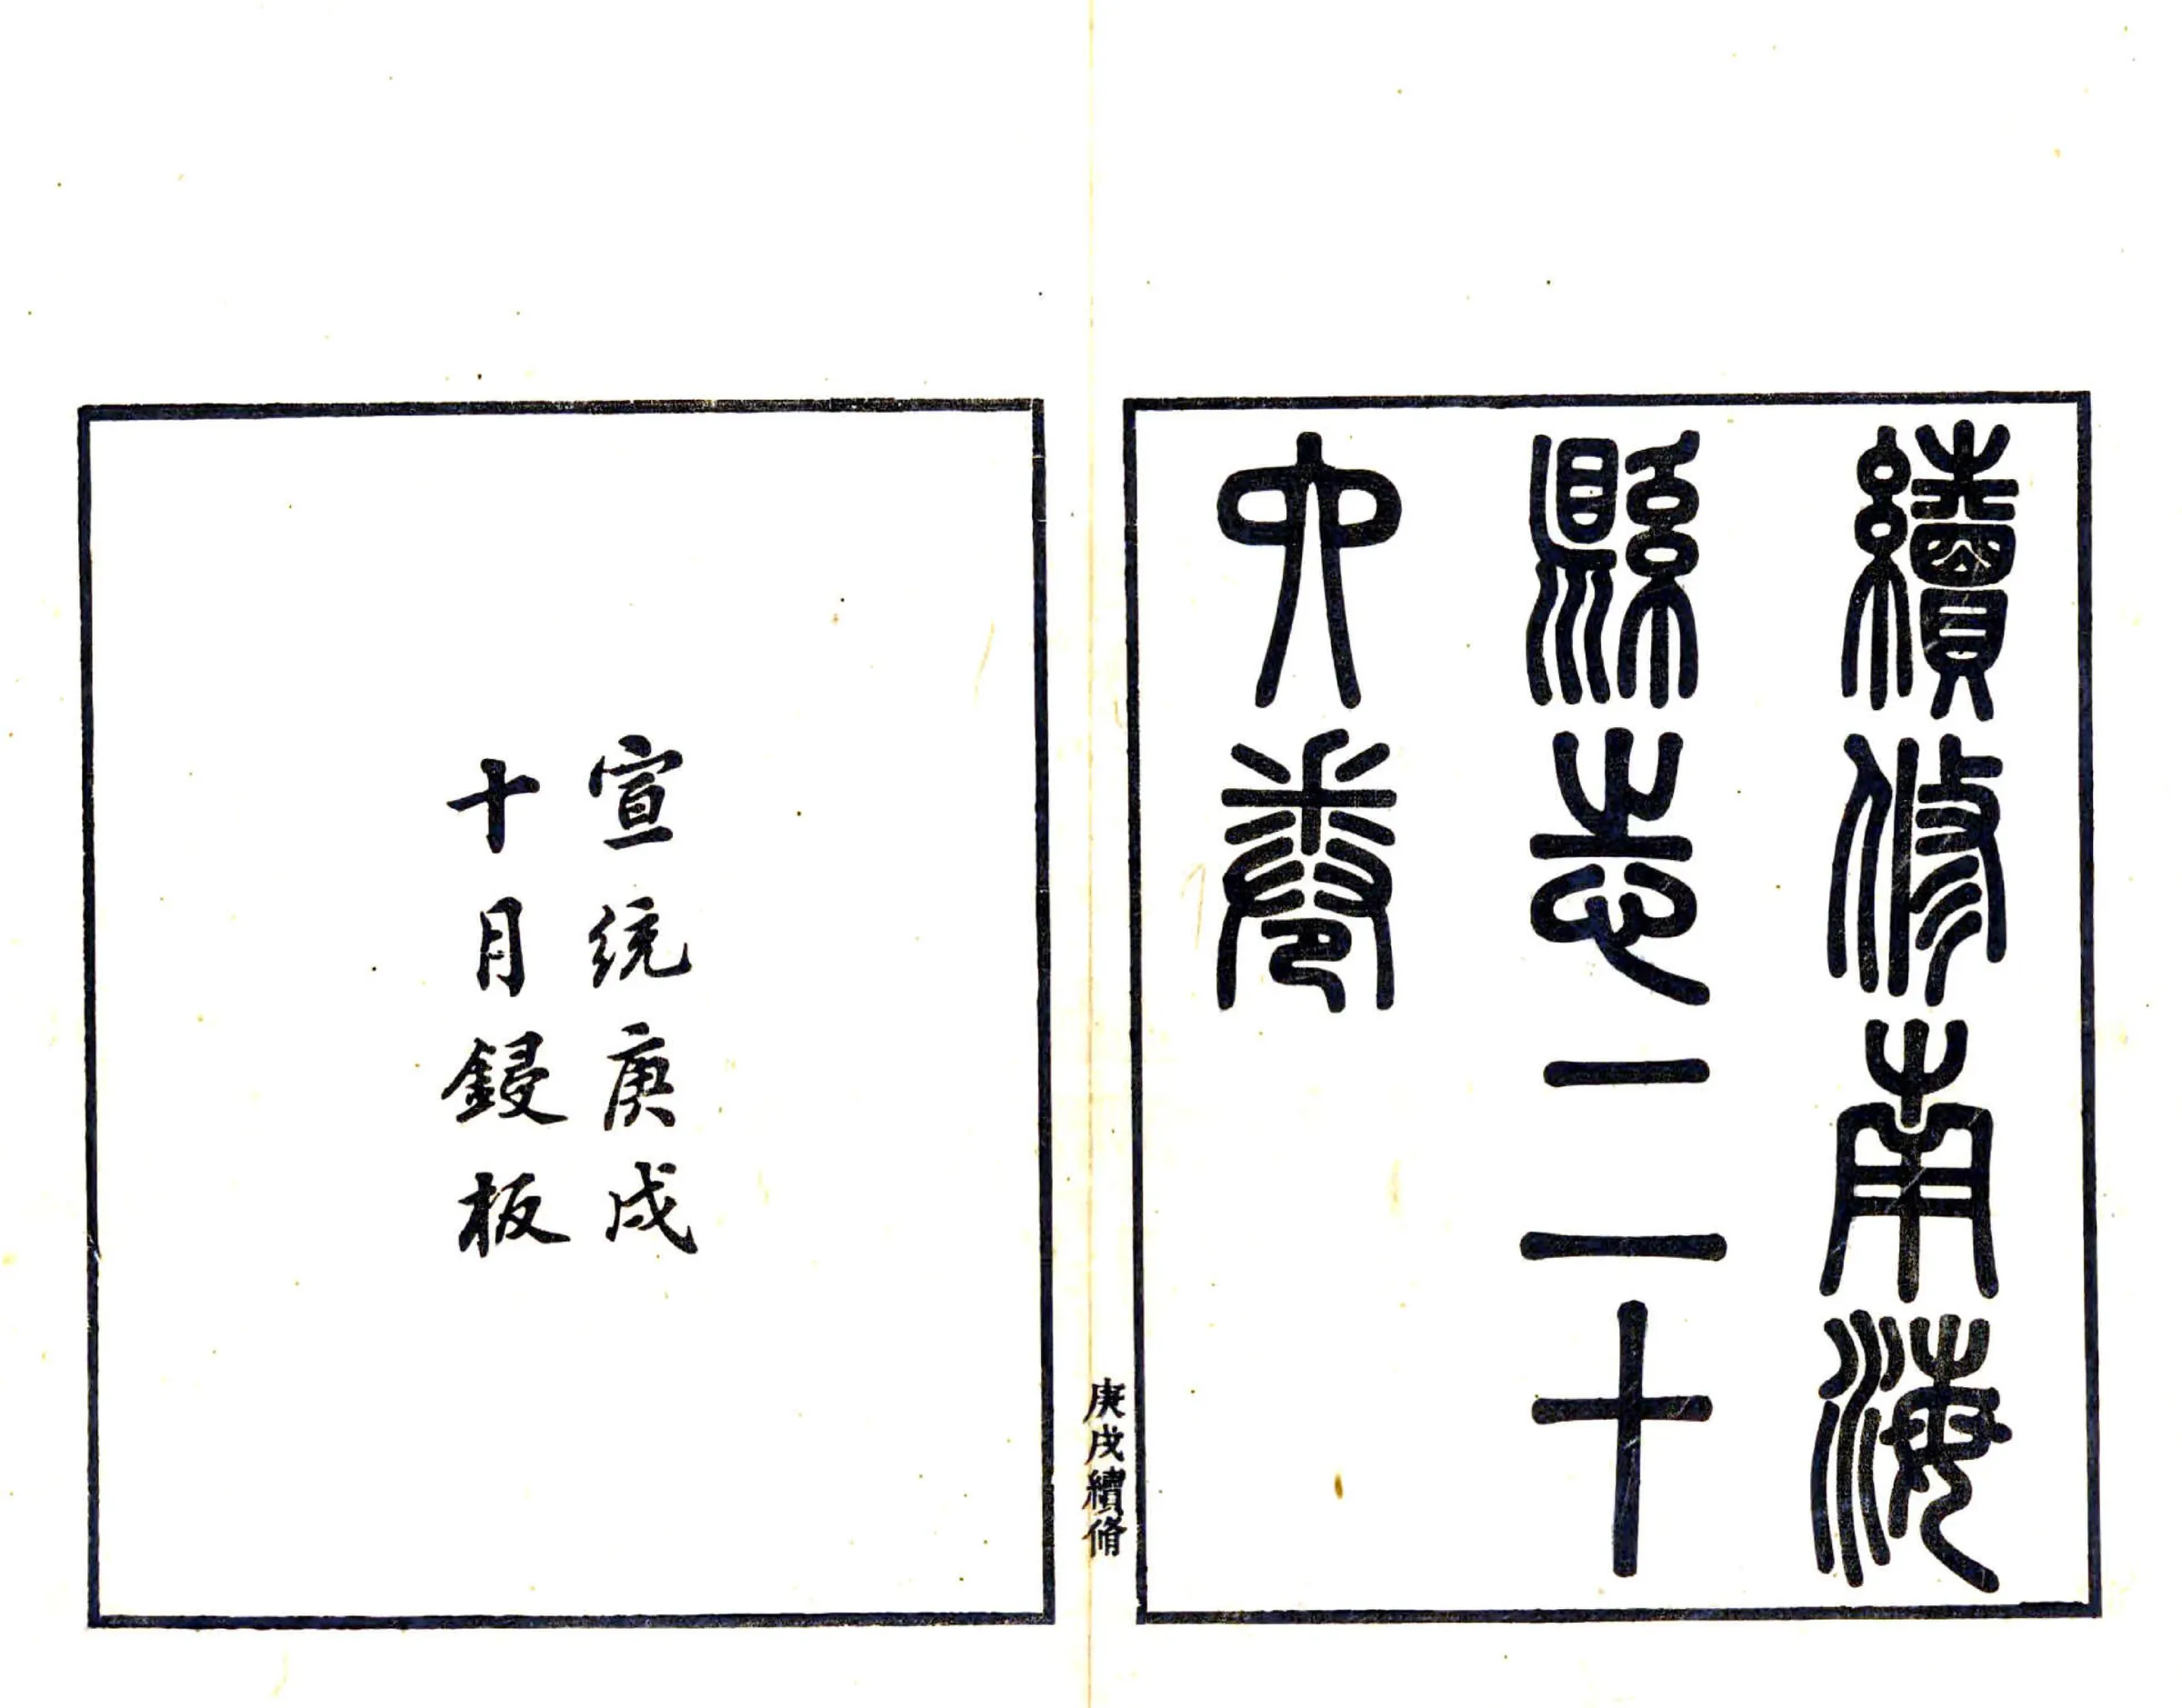 續修南海
縣志二十
六卷
庚戌續脩
宣統庚戌
十月鋟板